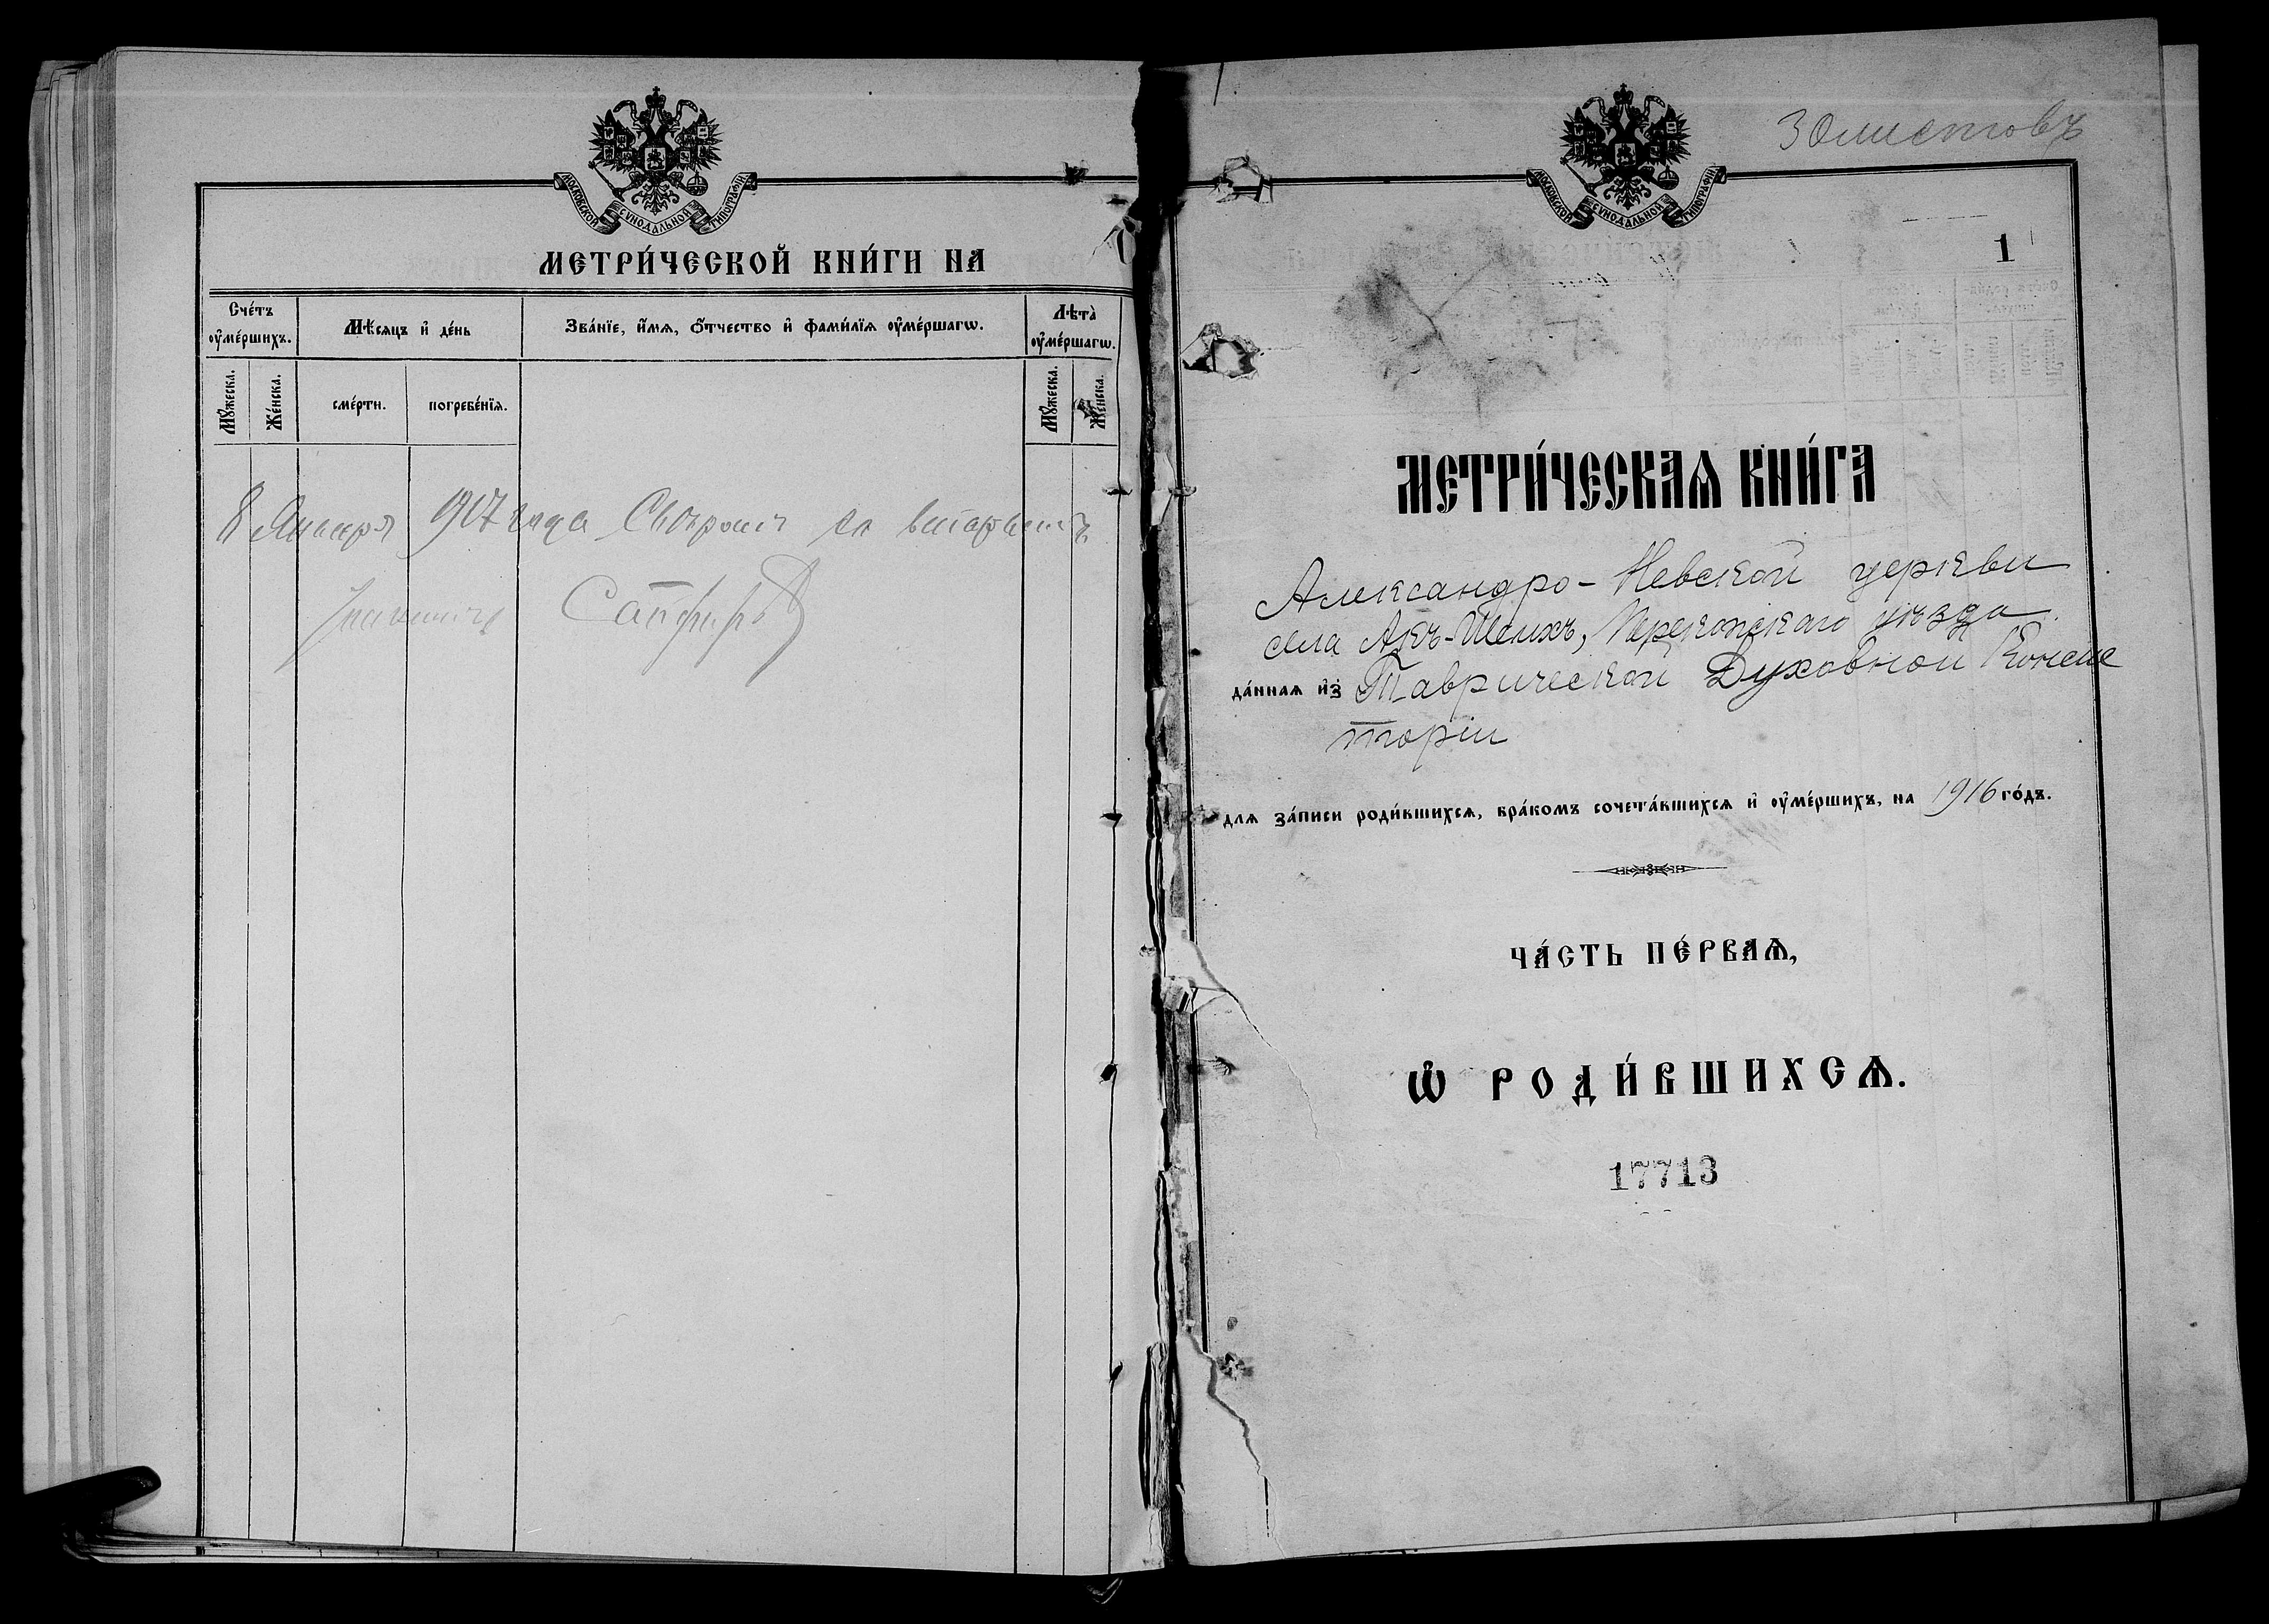 МОСКОВСКОЙ СУНОДАЛЬНОЙ ТИПОГРАФІИ
МЕТРИ́ЧЕСКОЙ КНИ́ГИ НА
Сче́тъ оу҆ме́ршихъ.
Мѣ́сяцъ и҆ де́нь
Зва́нїе, и҆́мѧ, ѻ҆́тчество и҆ фами́лїѧ оу҆ме́ршагѡ.
Лѣта̀ оу҆ме́ршагѡ.
Мꙋ́жеска.
Же́нска.
сме́рти.
погребе́нїѧ.
Мꙋ́жеска.
Же́нска.
8 Января 1917 года
Сапфировъ
30 листовъ
МОСКОВСКОЙ СУНОДАЛЬНОЙ ТИПОГРАФІИ
1
МЕТРИ́ЧЕСКАѦ КНИ́ГА
Александро-Невской церкви
села Акъ-Шеихъ, Перекопскаго уѣзда
да́ннаѧ и҆з̾ Таврической Духовной Консис
торіи
длѧ за́писи роди́вшихсѧ, бра́комъ сочета́вшихсѧ и҆ оу҆ме́ршихъ, на 1916 го́дъ.
ЧА́СТЬ ПЕ́РВАѦ,
Ѡ҆ РОДИ́ВШИХСѦ.
17713